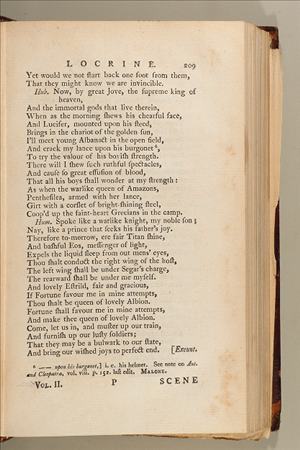 LOCRINE. 209
Yet would we not ſtart back one foot from them,
That they might know we are invincible.
Hub. Now, by great Jove, the ſupreme king of
heaven,
And the immortal gods that live therein,
When as the morning ſhews his chearful face,
And Lucifer, mounted upon his ſteed,
Brings in the chariot of the golden ſun,
I'll meet young Albanact in the open field,
And crack my lance upon his burgonet ⁸,
To try the valour of his boyiſh ſtrength.
There will I ſhew ſuch ruthful ſpectacles,
And cauſe ſo great effuſion of blood,
That all his boys ſhall wonder at my ſtrength:
As when the warlike queen of Amazons,
Pentheſilea, armed with her lance,
Girt with a corſlet of bright-ſhining ſteel,
Coop'd up the faint-heart Grecians in the camp.
Hum. Spoke like a warlike knight, my noble ſon;
Nay, like a prince that ſeeks his father's joy.
Therefore to-morrow, ere fair Titan ſhine,
And baſhful Eos, meſſenger of light,
Expels the liquid ſleep from out mens' eyes,
Thou ſhalt conduct the right wing of the hoſt,
The left wing ſhall be under Segar's charge,
The rearward ſhall be under me myſelf.
And lovely Eſtrild, fair and gracious,
If Fortune favour me in mine attempts,
Thou ſhalt be queen of lovely Albion.
Fortune ſhall favour me in mine attempts,
And make thee queen of lovely Albion.
Come, let us in, and muſter up our train,
And furniſh up our luſty ſoldiers;
That they may be a bulwark to our ſtate,
And bring our wiſhed joys to perfect end. [Exeunt.
⁸ —— upon his burgonet,] i. e. his helmet. See note on Ant.
and Cleopatra, vol. viii. p. 152. laſt edit. MALONE.
VOL. II. P SCENE